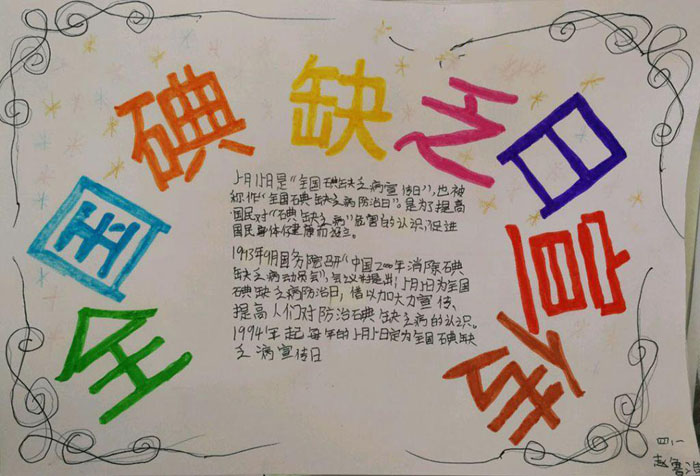 全国碘缺乏日宣传
5月15日是“全国碘缺乏病宣传日”,也被
称作“全国碘缺乏病防治日”。是为了提高
国民对“碘缺乏病”危害的认识,促进
国民身体健康而设立。
1993年9月国务院召开“中国2000年消除碘
缺乏病动员会”,会议并提出,5月5日为全国
碘缺乏病防治日,借以加大力宣传、
提高人们对防治碘缺乏病的认识。
1994年起每年的5月5日定为全国碘缺
乏病宣传日
四、一
赵雪